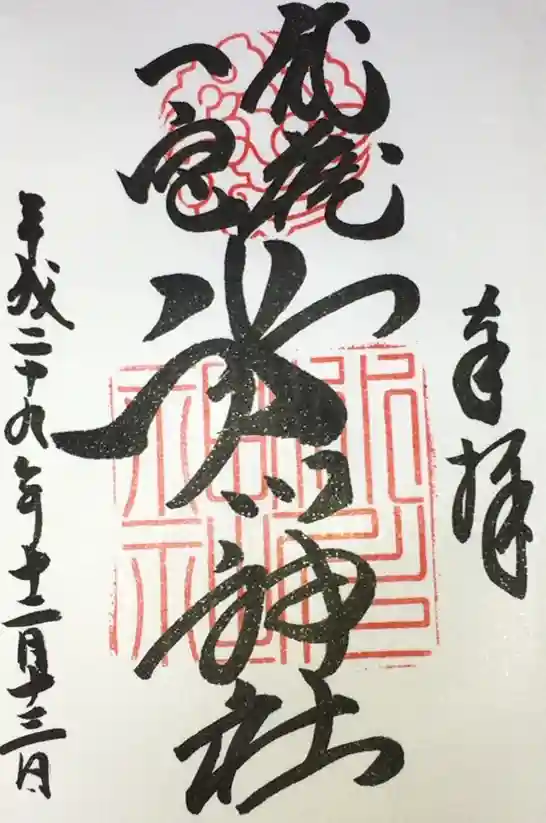 奉拝
武蔵
一宮
氷川神社
平成二十九年十二月十三日
氷川
神社